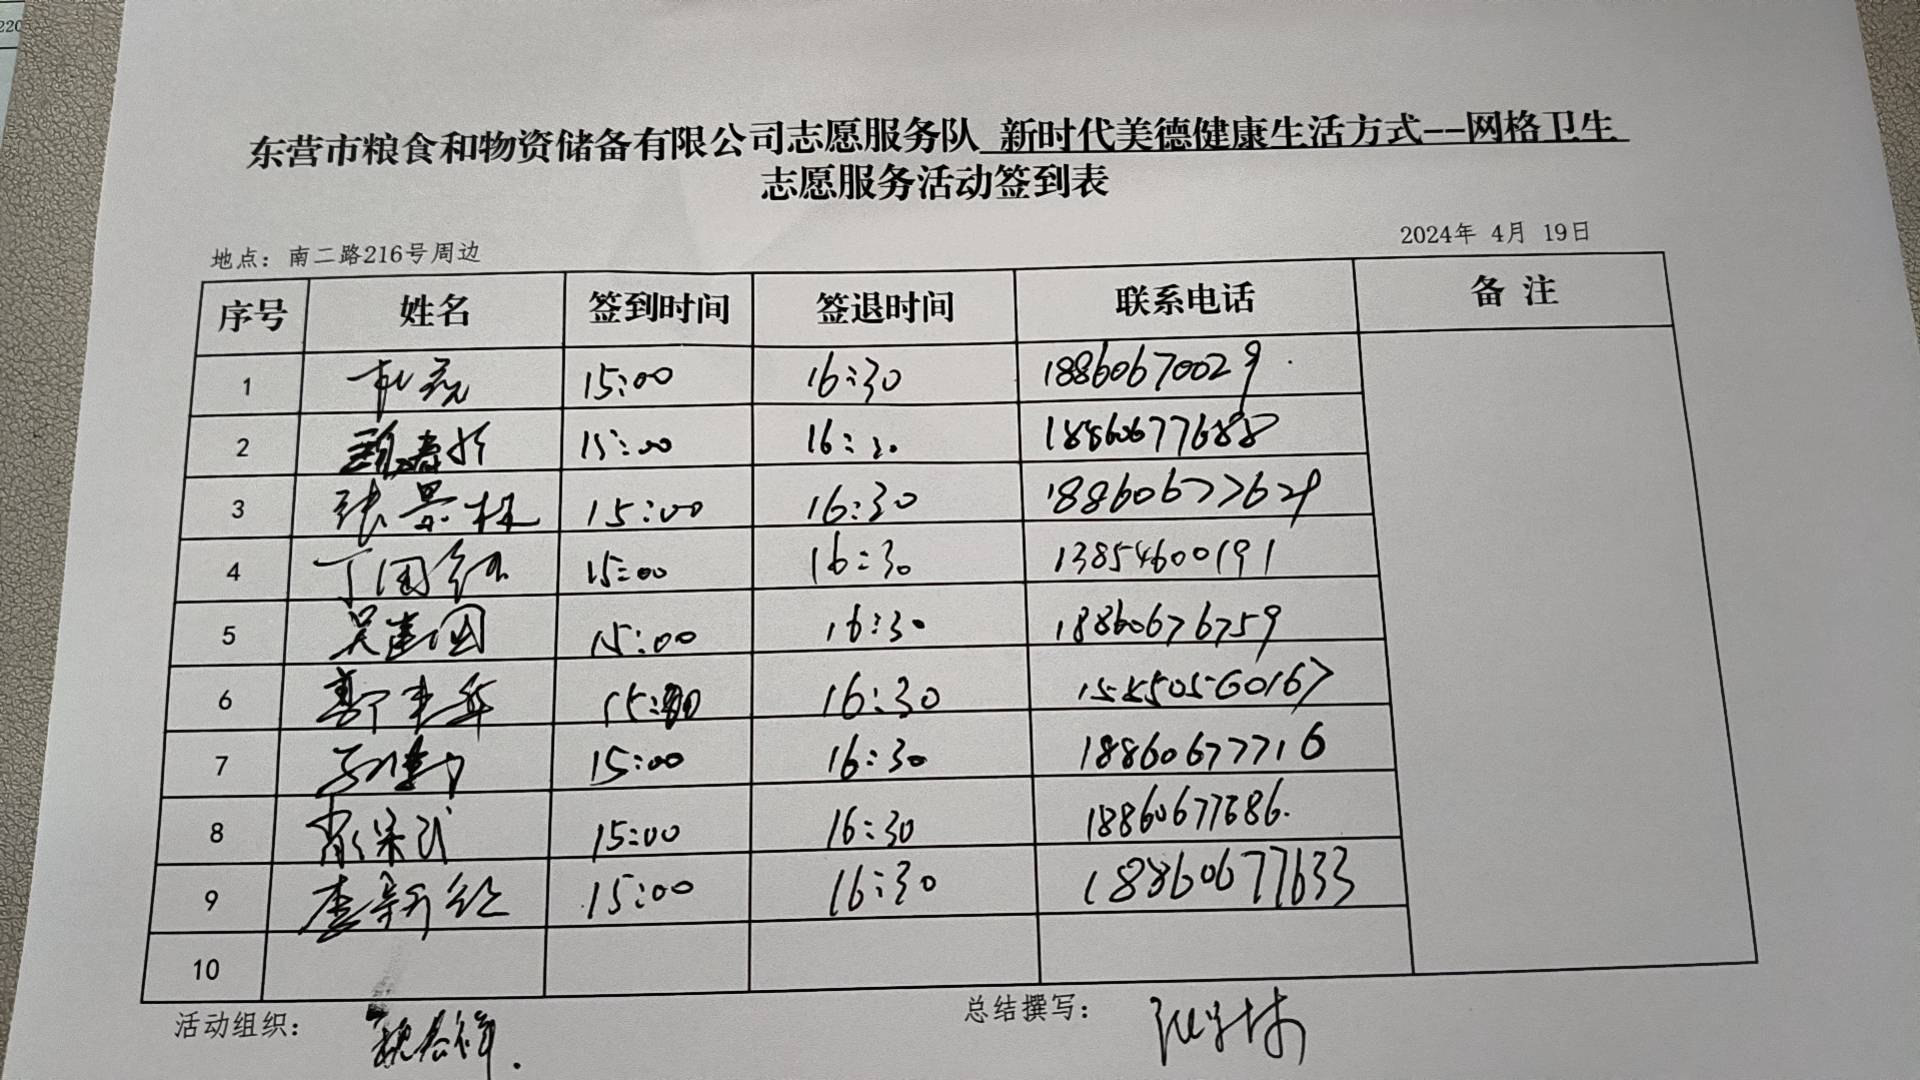 东营市粮食和物资储备有限公司志愿服务队 新时代美德健康生活方式--网格卫生
志愿服务活动签到表
地点：南二路216号周边 2024年 4月 19日
序号 姓名 签到时间 签退时间 联系电话 备 注
1 15:00 16:30 18860670029
2 15:00 16:30 18860677688
3 张景林 15:00 16:30 18860677629
4 丁国红 15:00 16:30 13854600191
5 吴建国 15:00 16:30 18860676759
6 15:00 16:30
7 15:00 16:30 18860677716
8 15:00 16:30 18860677686
9 李新红 15:00 16:30 18860677633
10
活动组织： 总结撰写：